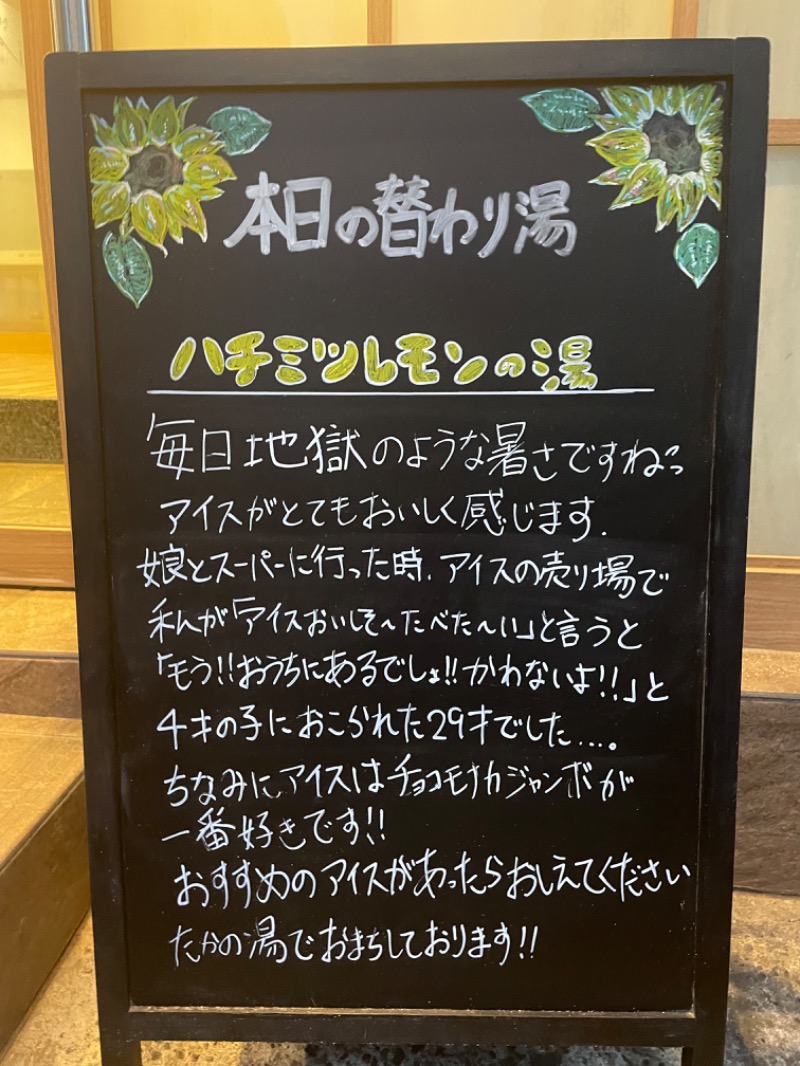 本日の替わり湯
ハチミツレモンの湯
毎日地獄のような暑さですねっ
アイスがとてもおいしく感じます.
娘とスーパーに行った時、アイスの売り場で
私が「アイスおいしそ〜たべた〜い」と言うと
「もう!!おうちにあるでしょ!!かわないよ!!」と
4才の子におこられた29才でした....。
ちなみに、アイスはチョコモナカジャンボが
一番好きです!!
おすすめのアイスがあったらおしえてください
たかの湯でおまちしております!!